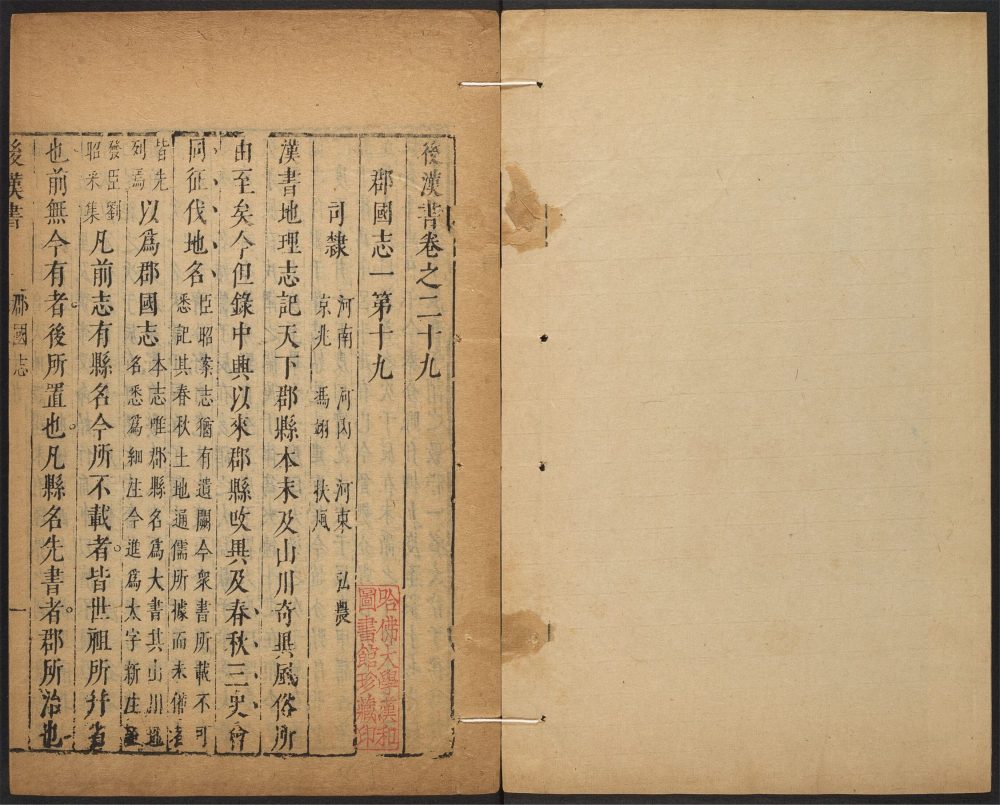 後漢書卷之二十九
郡國志一第十九
司隸
河南 河內 河東 弘農
京兆 馮翊 扶風
漢書地理志記天下郡縣本末及山川奇異風俗所
由至矣今但錄中興以來郡縣攺異及春秋三史會
同征伐地名
臣昭案志猶有遺闕今衆書所載不可
悉記其春秋土地通儒所據而未備者
皆先
列焉
以爲郡國志
本志唯郡縣名爲大書其山川
名悉爲細注今進爲大字新注
發臣劉
昭采集
凡前志有縣名今所不載者皆世祖所幷省
也前無今有者後所置也凡縣名先書者郡所治也
後漢書
郡國志
一
哈佛大學漢和
圖書館珍藏印